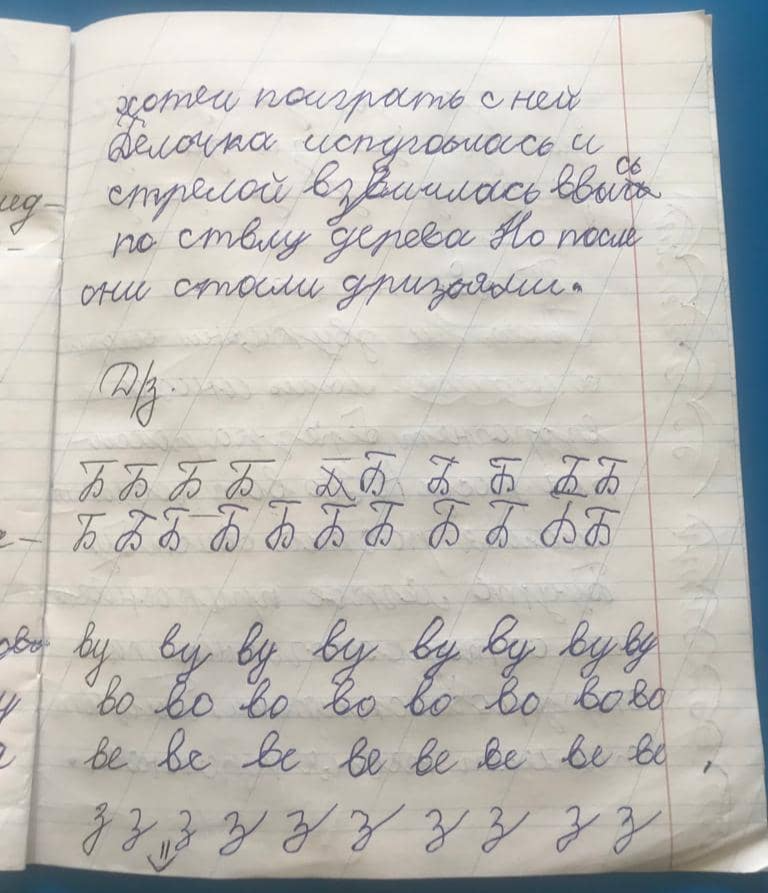 хотел поиграть с ней
Белочка испугалась и
стрелой взвилась ввысь
по стволу дерева Но после
они стали друзьями.
Д/з.
Б Б Б Б Б Б Б Б Б
Б Б Б Б Б Б Б Б Б Б Б
ву ву ву ву ву ву ву ву
во во во во во во во во
ве ве ве ве ве ве ве ве
з з з з з з з з з з